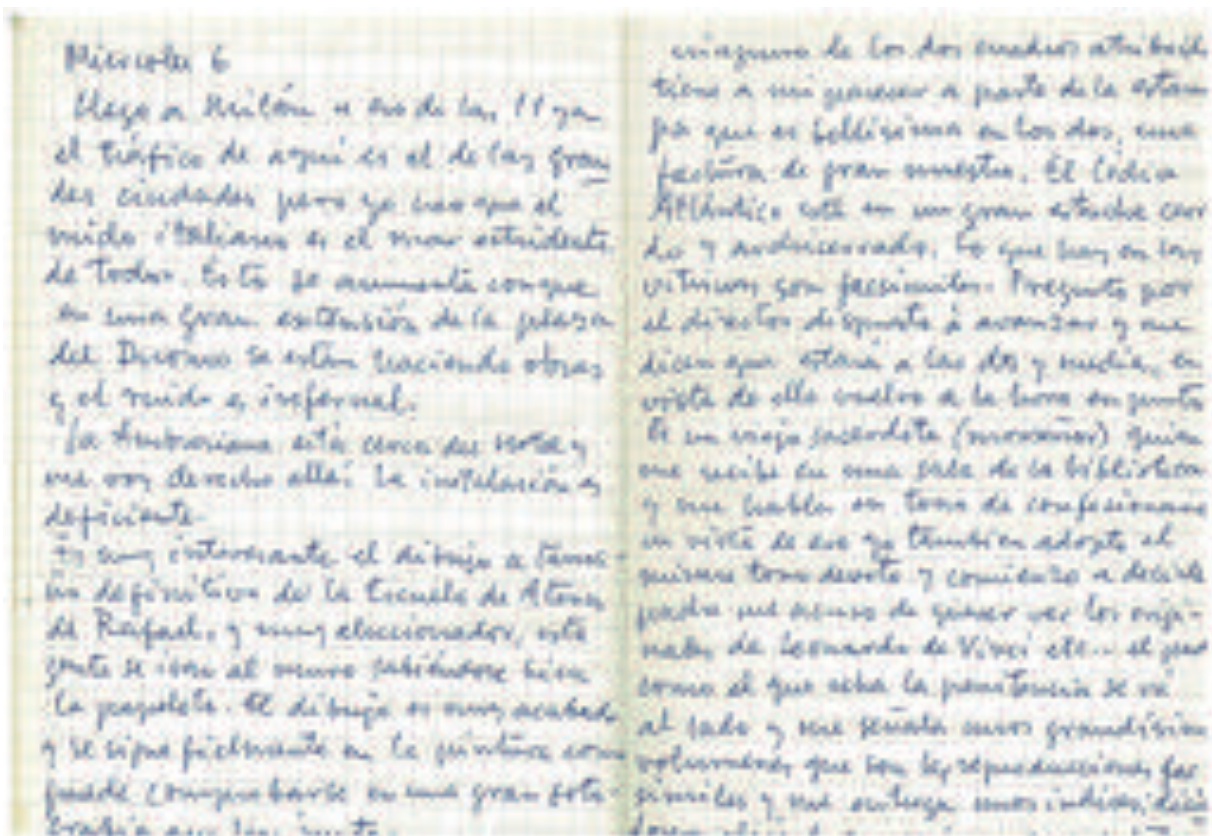 Miercoles 6
Llego a Milán a eso de las 11 ya
el tráfico de aquí es el de las gran
des ciudades pero yo creo que el
ruido italiano es el mas estridente
de todos. Esto se aumenta conque
en una gran extensión de la plaza
del Duomo se están haciendo obras
y el ruido es infernal.
La Ambrosiana está cerca del hotel y
me voy derecho allá: La instalación es
deficiente.
Es muy interesante el dibujo a tama-
ño definitivo de la Escuela de Atenas
de Rafael, y muy aleccionador, esta
gente se iban al muro sabiéndose bien
la papeleta. El dibujo es muy acabado
y se sigue fielmente en la pintura como
puede comprobarse en una gran foto-
grafia que hay junto.
ninguno de los dos cuadros atribuid
tiene a mi parecer a parte de la estam
pa que es bellísima en los dos, una
factura de gran maestro. El Códice
Atlántico está en un gran estuche cerra
do y archicerrado. Lo que hay en las
vitrinas son facsimiles. Pregunto por
el director dispuesto a avanzar y me
dicen que estará a las dos y media, en
vista de ello vuelvo a la hora en punto
Es un viejo sacerdote (monseñor) quien
me recibe en una sala de la biblioteca
y me habla en tono de confesionario
en vista de eso yo tambien adopto el
mismo tono devoto y comienzo a decirle
padre me acuso de querer ver los origi-
nales de Leonardo de Vinci etc... el pad
como el que echa la penitencia se va
al lado y me señala unos grandísimos
volumenes, que son las reproducciones fac
similes y me entrega unos indices